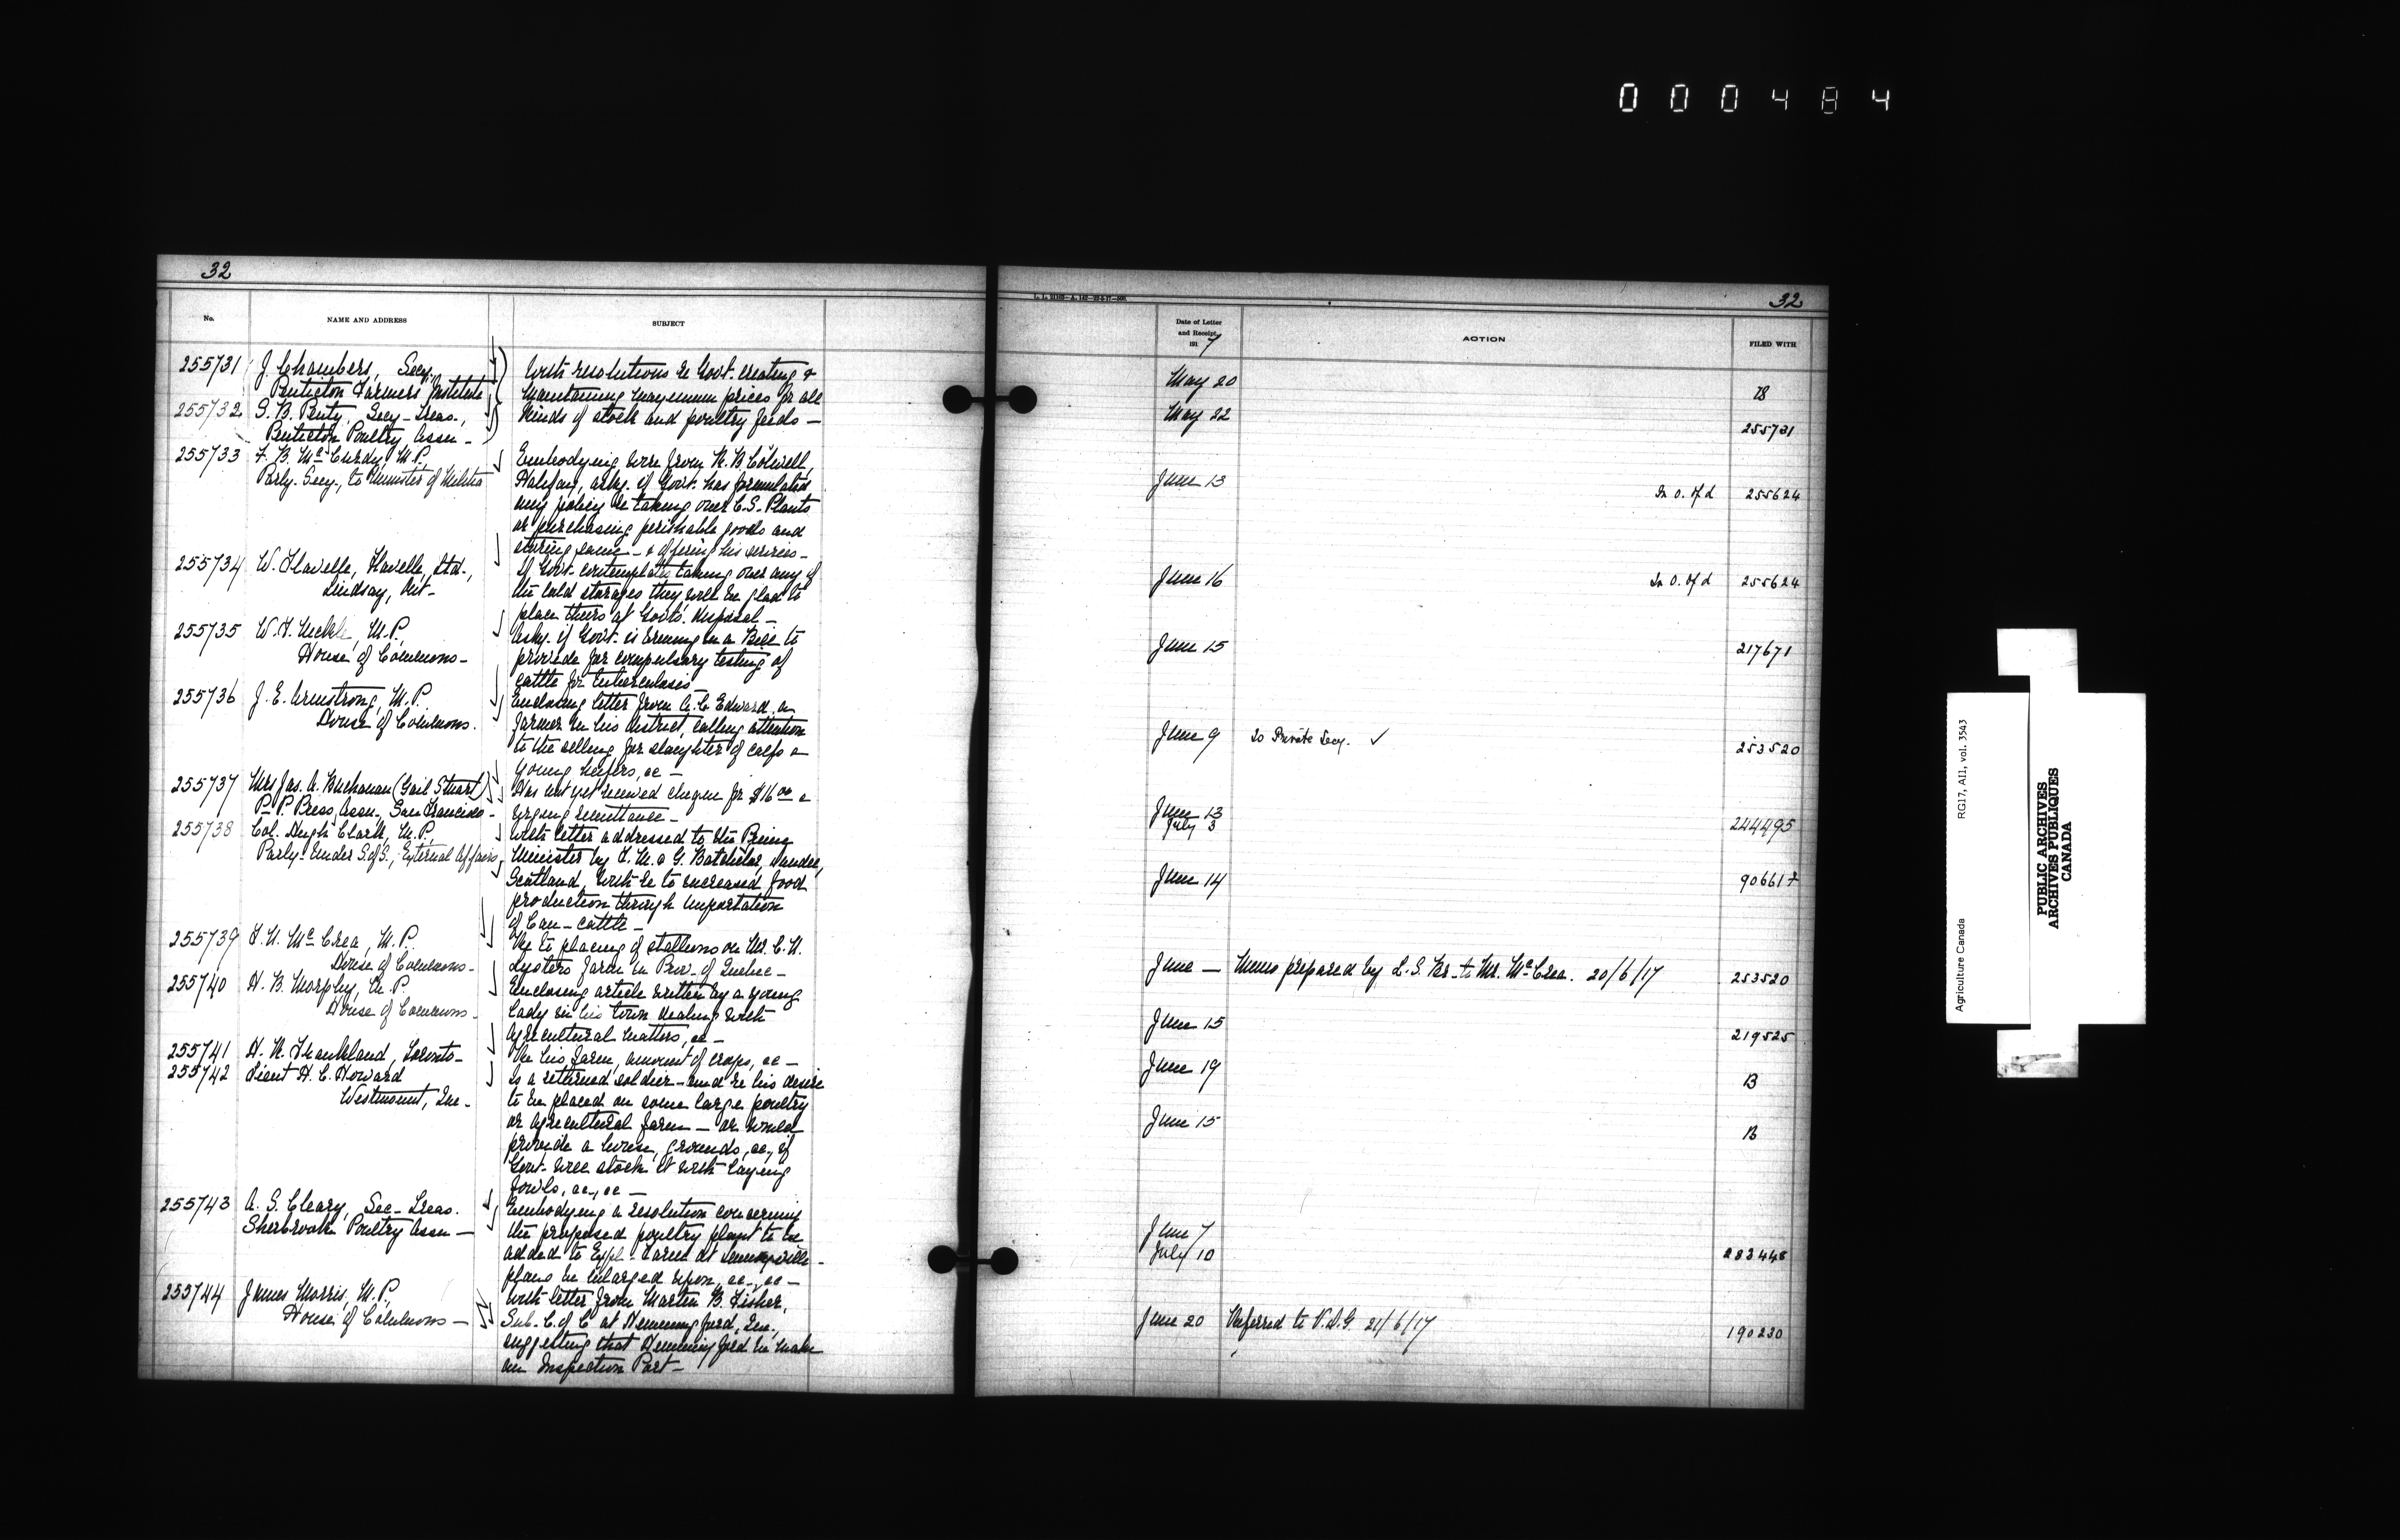 000484
32
No.
NAME AND ADDRESS
SUBJECT
255731 J. Chambers, Secy.,
Penticton Farmers Institute
255732 S. B. Penty, Secy-Treas.,
Penticton Poultry Assn -
With resolutions re Govt. creating &
maintaining maximum prices for all
kinds of stock and poultry feeds —
255733 F. B. McCurdy, M.P.
Parly. Secy., to Minister of Militia
Embodying wire from H. B. Colwell,
Halifax, askg. if Govt. has formulated
any policy re taking over C.S. Plants
or purchasing perishable goods and
storing same - & offering his services -
255734 W. Flavelle, Flavelle, Ltd.,
Lindsay, Ont -
If Govt. contemplate taking over any of
the cold storages they will be glad to
place theirs at Govts. disposal -
255735 W. F. Nickle, M.P.,
House of Commons -
Askg. if Govt. is bringing in a Bill to
provide for compulsory testing of
cattle for tuberculosis
255736 J. E. Armstrong, M.P.
House of Commons.
Enclosing letter from A. C. Edward, a
farmer in his district, calling attention
to the selling for slaughter of calfs &
young heifers, &c -
255737 Mrs Jas. A. Buchanan (Gail Stuart)
P. P. Press Assn., San Francisco -
Has not yet received cheque for $16 00 &
urging remittance -
255738 Col. Hugh Clark, M.P.
Parly. Under S. of S., External Affairs
With letter addressed to the Prime
Minister by F. M. & G. Batchelor, Dundee,
Scotland, with re to increased food
production through importation
of Can - cattle -
255739 F. N. McCrea, M.P.
House of Commons -
Re to placing of stallions on Mr. C. H.
Lysters farm in Prov. of Quebec -
255740 H. B. Morphy, M.P.
House of Commons -
Enclosing article written by a young
lady in his town dealing with
agricultural matters, &c -
255741 H. R. Frankland, Toronto -
Re his farm, amount of crops, &c -
255742 Lieut H. C. Howard
Westmount, Que -
Is a returned soldier - and re his desire
to be placed on some large poultry
or agricultural farm - or would
provide a house, grounds, &c., if
Govt. will stock it with laying
fowls, &c., &c -
255743 A. S. Cleary, Sec - Treas.
Sherbrooke Poultry Assn -
Embodying a resolution concerning
the proposed poultry plant to be
added to Exptl. Farm at Lennoxville -
plans be enlarged upon, &c., &c -
255744 James Morris, M.P.,
House of Commons -
With letter from Martin B. Fisher,
Sub. C. of C at Hemmingford, Que.,
suggesting that Hemmingford be made
an Inspection Port -
32
Date of Letter
and Receipt
191 7
ACTION
FILED WITH
May 20 B
May 22 255731
June 13 In O. of d 255624
June 16 In O. of d 255624
June 15 217671
June 9 To Private Secy. ✓ 253520
June 13
July 3 244495
June 14 90661
June — Memo prepared by L. S. Br. to Mr. McCrea. 20/6/17 253520
June 15 219525
June 19 B
June 15 B
June 7
July 10 283448
June 20 Referred to V.D.G. 21/6/17 190230
Agriculture Canada
RG17, AII, vol. 3543
PUBLIC ARCHIVES
ARCHIVES PUBLIQUES
CANADA